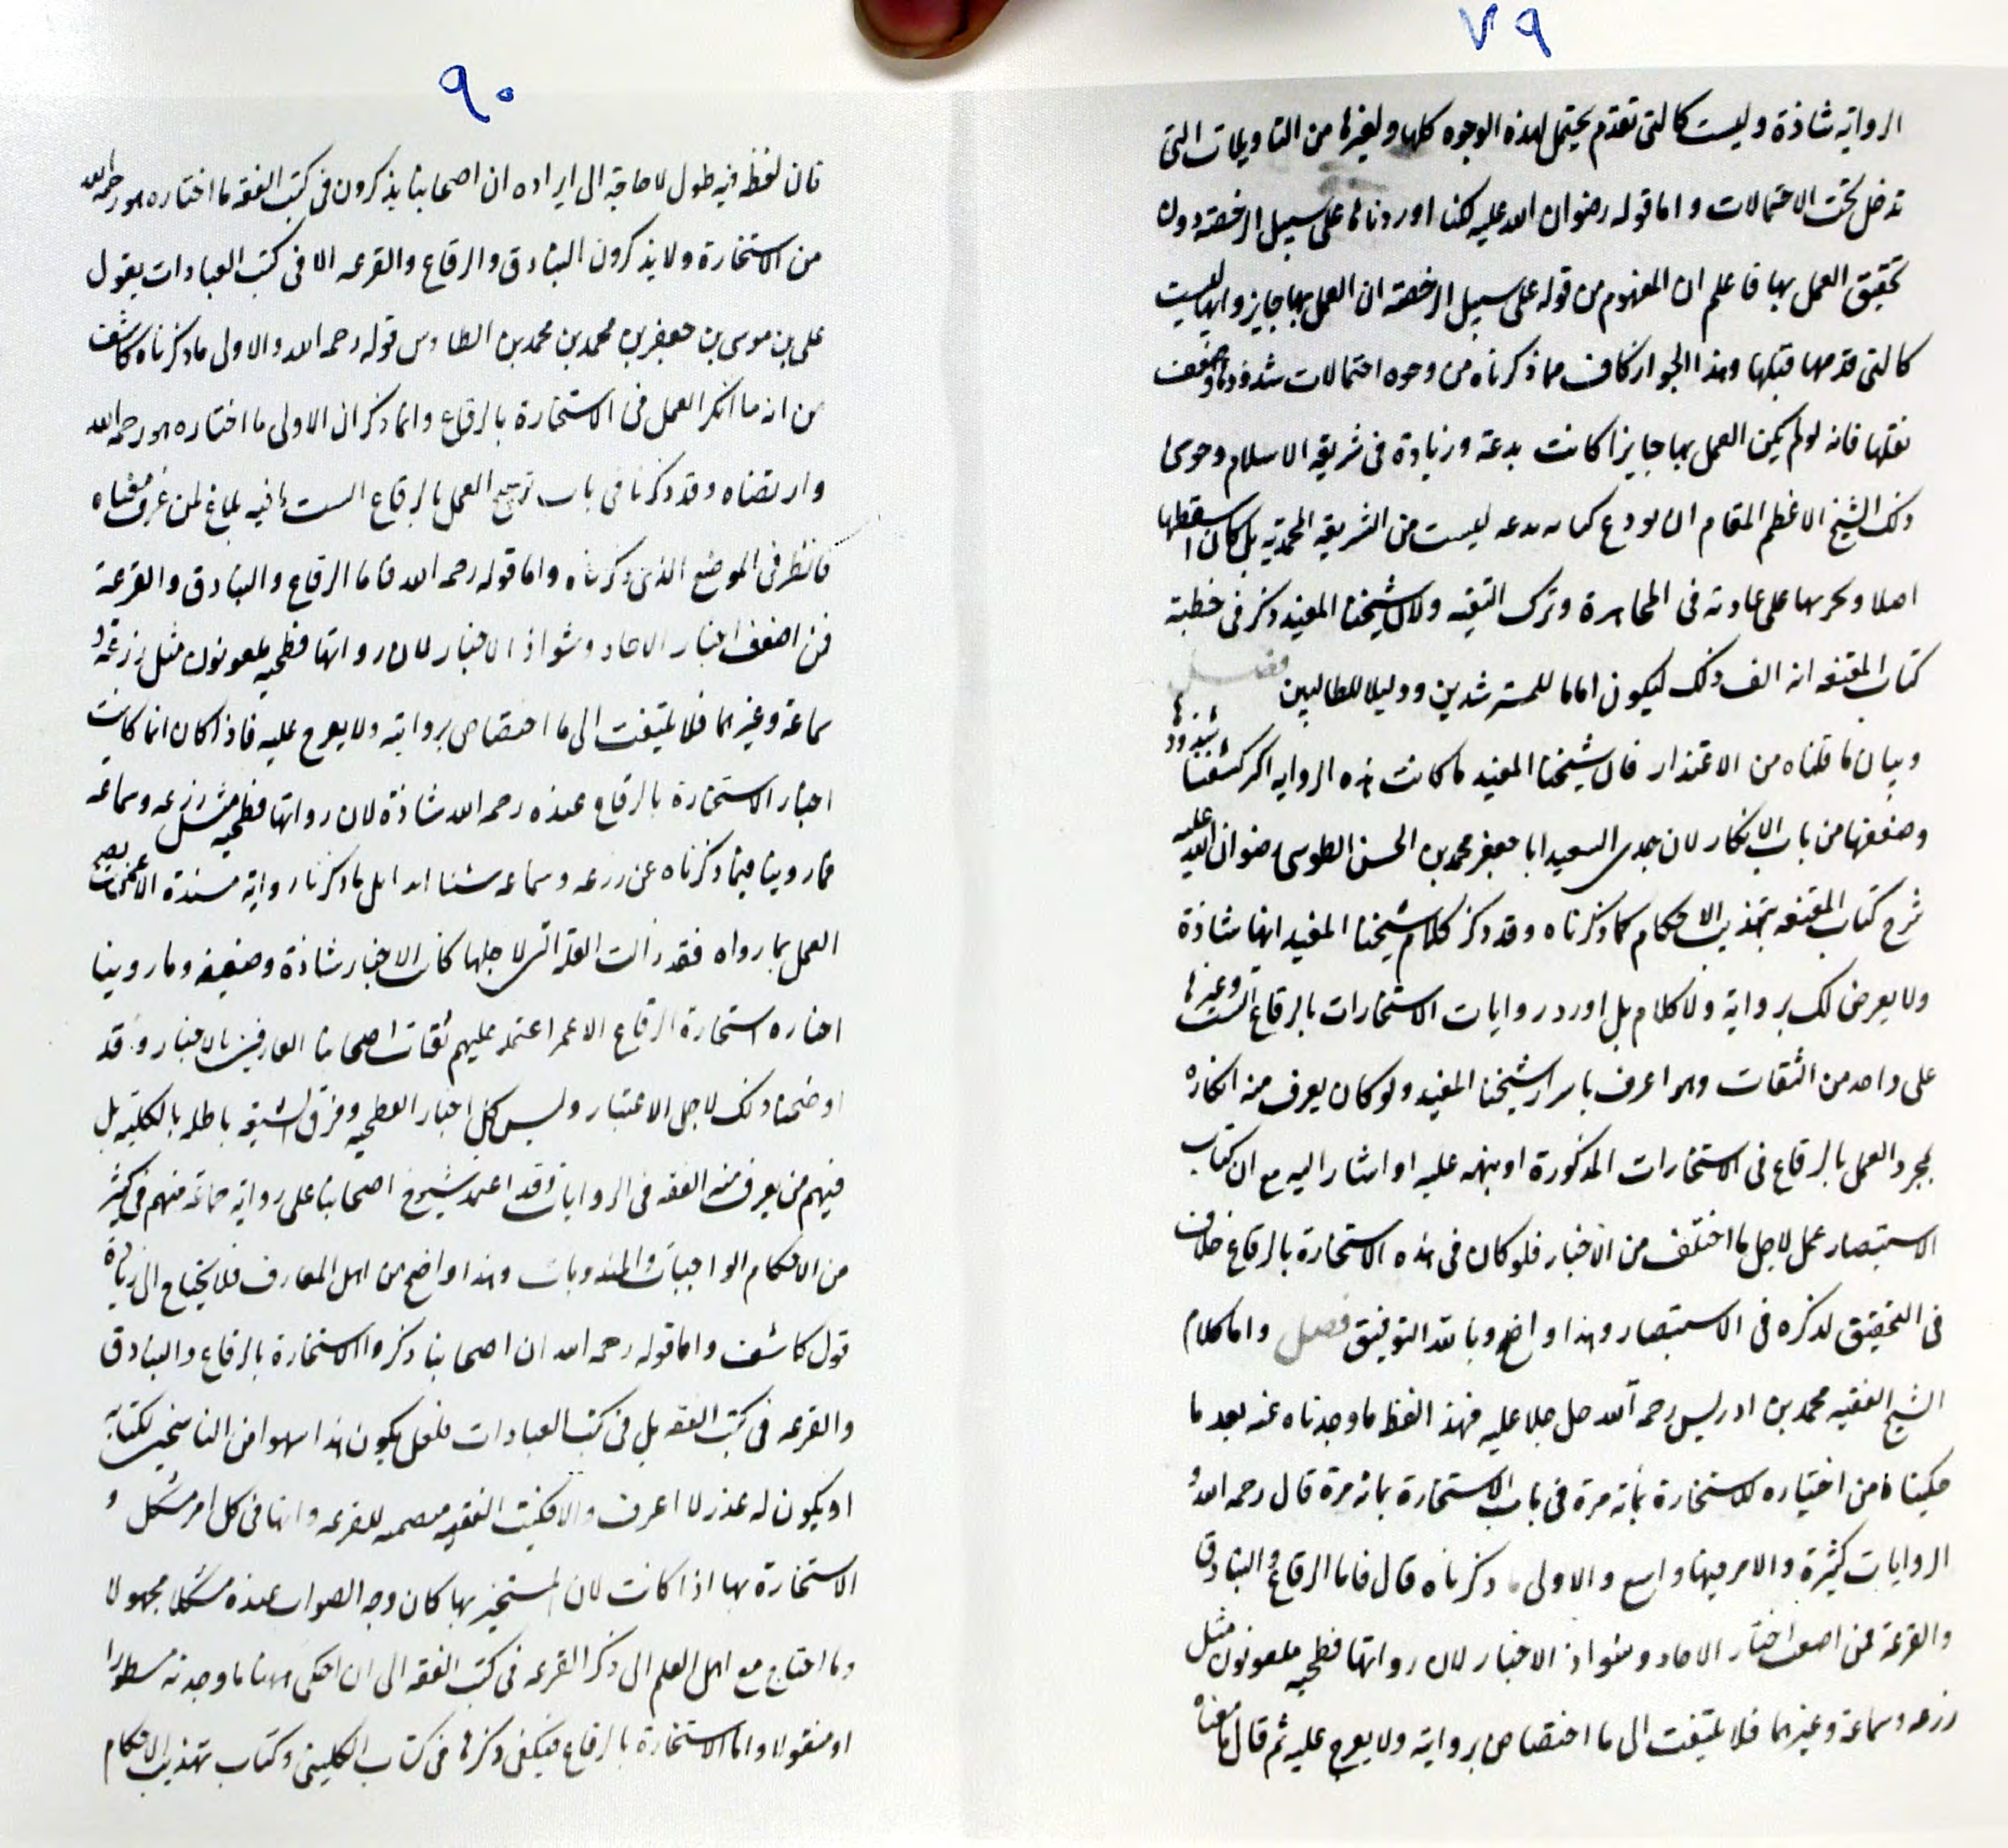 ٧٩
الرواية شاذة وليست كالتى تقدم يحتمل لهذه الوجوه كلها ولغيرها من التاويلات التى
تدخل تحت الاحتمالات واما قوله رضوان الله عليه لكنا اوردناها على سبيل الرخصة دون
تحقيق العمل بها فاعلم ان المفهوم من قوله على سبيل الرخصة ان العمل بها جايز وانها ليست
كالتى قدمها قبلها وهذا الجواز كاف مما ذكرناه من وجوه احتمالات شذوذها وضعف
نقلها فانه لو لم يكن العمل بها جايزا كانت بدعة وزيادة فى شريعة الاسلام وحوى
ذلك الشيخ الاعظم المقام ان يودع كتابه بدعه ليست من الشريعة المحمدية بل كان اسقطها
اصلا وحرمها على عادته فى المجاهرة وترك التقية ولان شيخنا المفيد ذكر فى خطبة
كتاب المقنعه انه الف ذلك ليكون اماما للمسترشدين ودليلا للطالبين فصل
وبيان ما قلناه من الاعتذار فان شيخنا المفيد ما كانت هذه الرواية اكر كشفنا بشذوذها
وضعفها من باب الانكار لان جدى السعيد ابا جعفر محمد بن الحسن الطوسى رضوان الله عليه
شرح كتاب المقنعه بتهذيب الاحكام كما ذكرناه وقد ذكر كلام شيخنا المفيد انها شاذة
ولا يعرض لك برواية ولا كلام بل اورد روايات الاستخارات بالرقاع الست وغيرها
على واحد من الثقات وهو اعرف باسرار شيخنا المفيد ولو كان يعرف منه انكاره
لمجرد العمل بالرقاع فى الاستخارات المذكورة او ينهه عليه او اشار اليه مع ان كتاب
الاستبصار عمل لاجل ما اختلف من الاخبار فلو كان فى هذه الاستخارة بالرقاع خلاف
فى التحقيق لذكره فى الاستبصار وهذا واضح وبالله التوفيق فصل واما كلام
الشيخ الفقيه محمد بن ادريس رحمه الله جل جلا عليه فهذا لفظ ما وجدناه عنه بعد ما
حكيناه من اختياره للاستخارة بمأته مرة فى باب الاستخارة بمائه مرة قال رحمه الله و
الروايات كثيرة والامر فيها واسع والاولى ما ذكرناه قال فاما الرقاع والبنادق
والقرعة فمن اضعف اخبار الاحاد وشواذ الاخبار لان رواتها فطحيه ملعونون مثل
زرعه وسماعة وغيرهما فلا يلتفت الى ما اختصا به برواية ولا يعرج عليه ثم قال ما معناه
٩٠
فان لفظه فيه طول لا حاجة الى ايراده ان اصحابنا يذكرون فى كتب الفقه ما اختاره هو رحمه الله
من الاستخارة ولا يذكرون البنادق والرقاع والقرعه الا فى كتب العبادات يقول
على بن موسى بن جعفر بن محمد بن محمد بن الطاوس قوله رحمه الله والاولى ما ذكرناه كاشف
من انه ما انكر العمل فى الاستخارة بالرقاع وانما ذكر ان الاولى ما اختاره هو رحمه الله
وارتضاه وقد ذكرنا فى باب ترجيح العمل بالرقاع الست ما فيه بلاغ لمن عرف معناه
فانظر فى الموضع الذى ذكرناه واما قوله رحمه الله فاما الرقاع والبنادق والقرعة
فمن اضعف اخبار الاحاد وشواذ الاخبار لان رواتها فطحيه ملعونون مثل زرعة و
سماعة وغيرهما فلا يلتفت الى ما اختصا به برواية ولا يعرج عليه فاذا كان انما كانت
اخبار الاستخارة بالرقاع عنده رحمه الله شاذة لان رواتها فطحيه مثل زرعه وسماعه
فما روينا فيما ذكرناه عن زرعه وسماعه شيئا ابدا بل ما ذكرنا رواية مسندة الا عمن
العمل بما رواه فقد زالت العله التى لاجلها كان الاخبار شاذة وضعيفه وما روينا
اخباره استخارة الرقاع الا عمن اعتمد عليهم ثقات اصحابنا العارفين بالاخبار وقد
اوضحنا ذلك لاجل الاعتبار وليس كل اخبار الفطحيه وفرق الشيعه باطله بالكلية بل
فيهم من يعرف منه الفقه فى الروايات وقد اعتمد شيوخ اصحابنا على رواية جماعة منهم فى كثير
من الاحكام الواجبات والمندوبات وهذا واضح من اهل المعارف فلا يحتاج الى زيادة
قول كاشف واما قوله رحمه الله ان اصحابنا ذكروا الاستخارة بالرقاع والبنادق
والقرعه فى كتب الفقه بل فى كتب العبادات فلعل يكون هذا سهوا من الناسخين لكتابة
او يكون له عذر لا اعرف والا فكتب الفقيه متضمنه للقرعه وانها فى كل امر مشكل و
الاستخارة بها اذا كانت لان المستخير بها كان وجه الصواب عنده مشكلا مجهولا
وما احتاج مع اهل العلم الى ذكر القرعه فى كتب الفقه الى ان احكى ههنا ما وجدته مسطورا
او منقولا واما الاستخارة بالرقاع فيكفى ذكرها فى كتاب الكلينى وكتاب تهذيب الاحكام